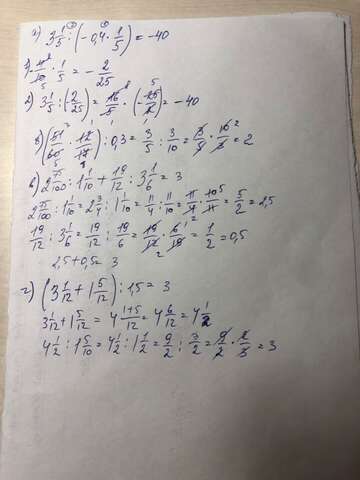 а) 3 1/5 : (-0,4 · 1/5) = -40
1) -4/10 · 1/5 = -2/25
2) 3 1/5 : (-2/25) = 16/5 · (-25/2) = -40
б) (51/60 · 12/17) : 0,3 = 3/5 : 3/10 = 3/5 · 10/3 = 2
в) 2 75/100 : 1 1/10 + 19/12 : 3 1/6 = 3
2 75/100 : 1 1/10 = 2 3/4 : 1 1/10 = 11/4 : 11/10 = 11/4 · 10/11 = 5/2 = 2,5
19/12 : 3 1/6 = 19/12 : 19/6 = 19/12 · 6/19 = 1/2 = 0,5
2,5 + 0,5 = 3
г) (3 1/12 + 1 5/12) : 1,5 = 3
3 1/12 + 1 5/12 = 4 1+5/12 = 4 6/12 = 4 1/2
4 1/2 : 1 5/10 = 4 1/2 : 1 1/2 = 9/2 : 3/2 = 9/2 · 2/3 = 3